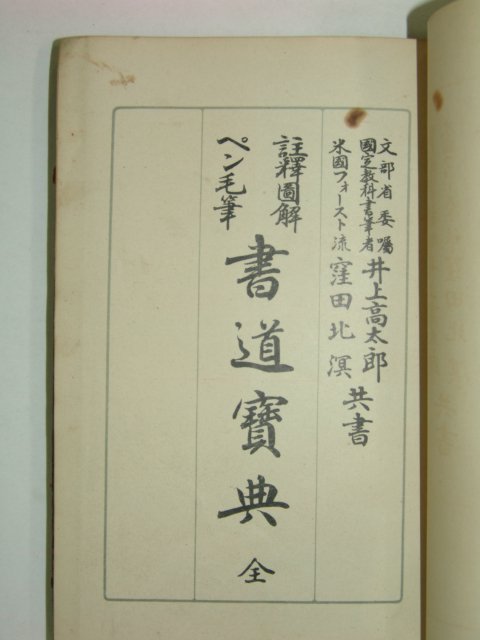 文部省委嘱
國定教科書筆者 井上高太郎
米國フォースト流 窪田北溟 共書
註釋圖解
ペン毛筆
書道寶典 全